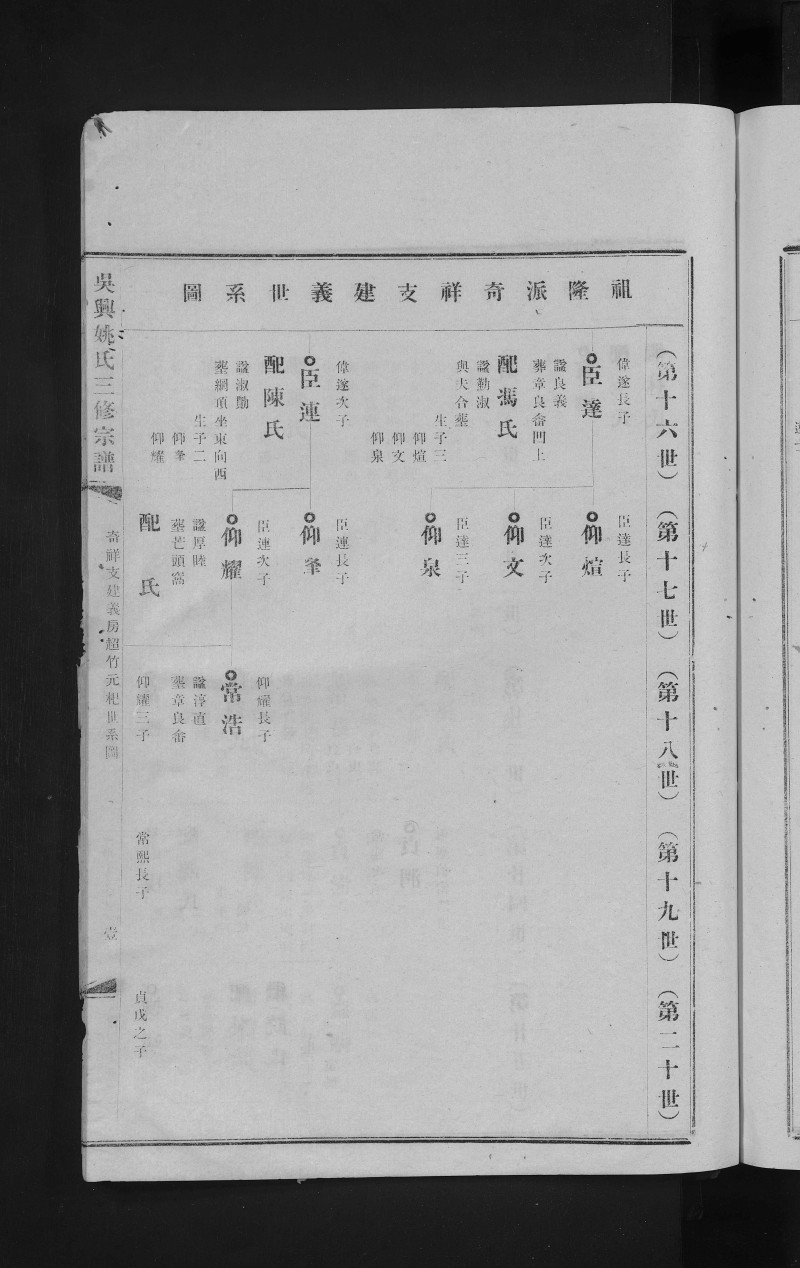 祖隆派奇祥支建義世系圖
（第十六世）
（第十七世）
（第十八世）
（第十九世）
（第二十世）
偉遂長子
臣達
諡良義
葬章良畬門上
配馮氏
諡勤淑
與夫合塟
生子三
仰煊
仰文
仰泉
偉遂次子
臣連
配陳氏
諡淑勤
塟綱項坐東向西
生子二
仰夆
仰耀
臣達長子
仰煊
臣達次子
仰文
臣達三子
仰泉
臣連長子
仰夆
臣連次子
仰耀
諡厚睦
塟芒頭窩
配 氏
仰耀長子
常浩
諡淳直
塟章良畬
仰耀三子
常熙長子
貞戊之子
吳興姚氏三修宗譜
奇祥支建義房超竹元杞世系圖
壹